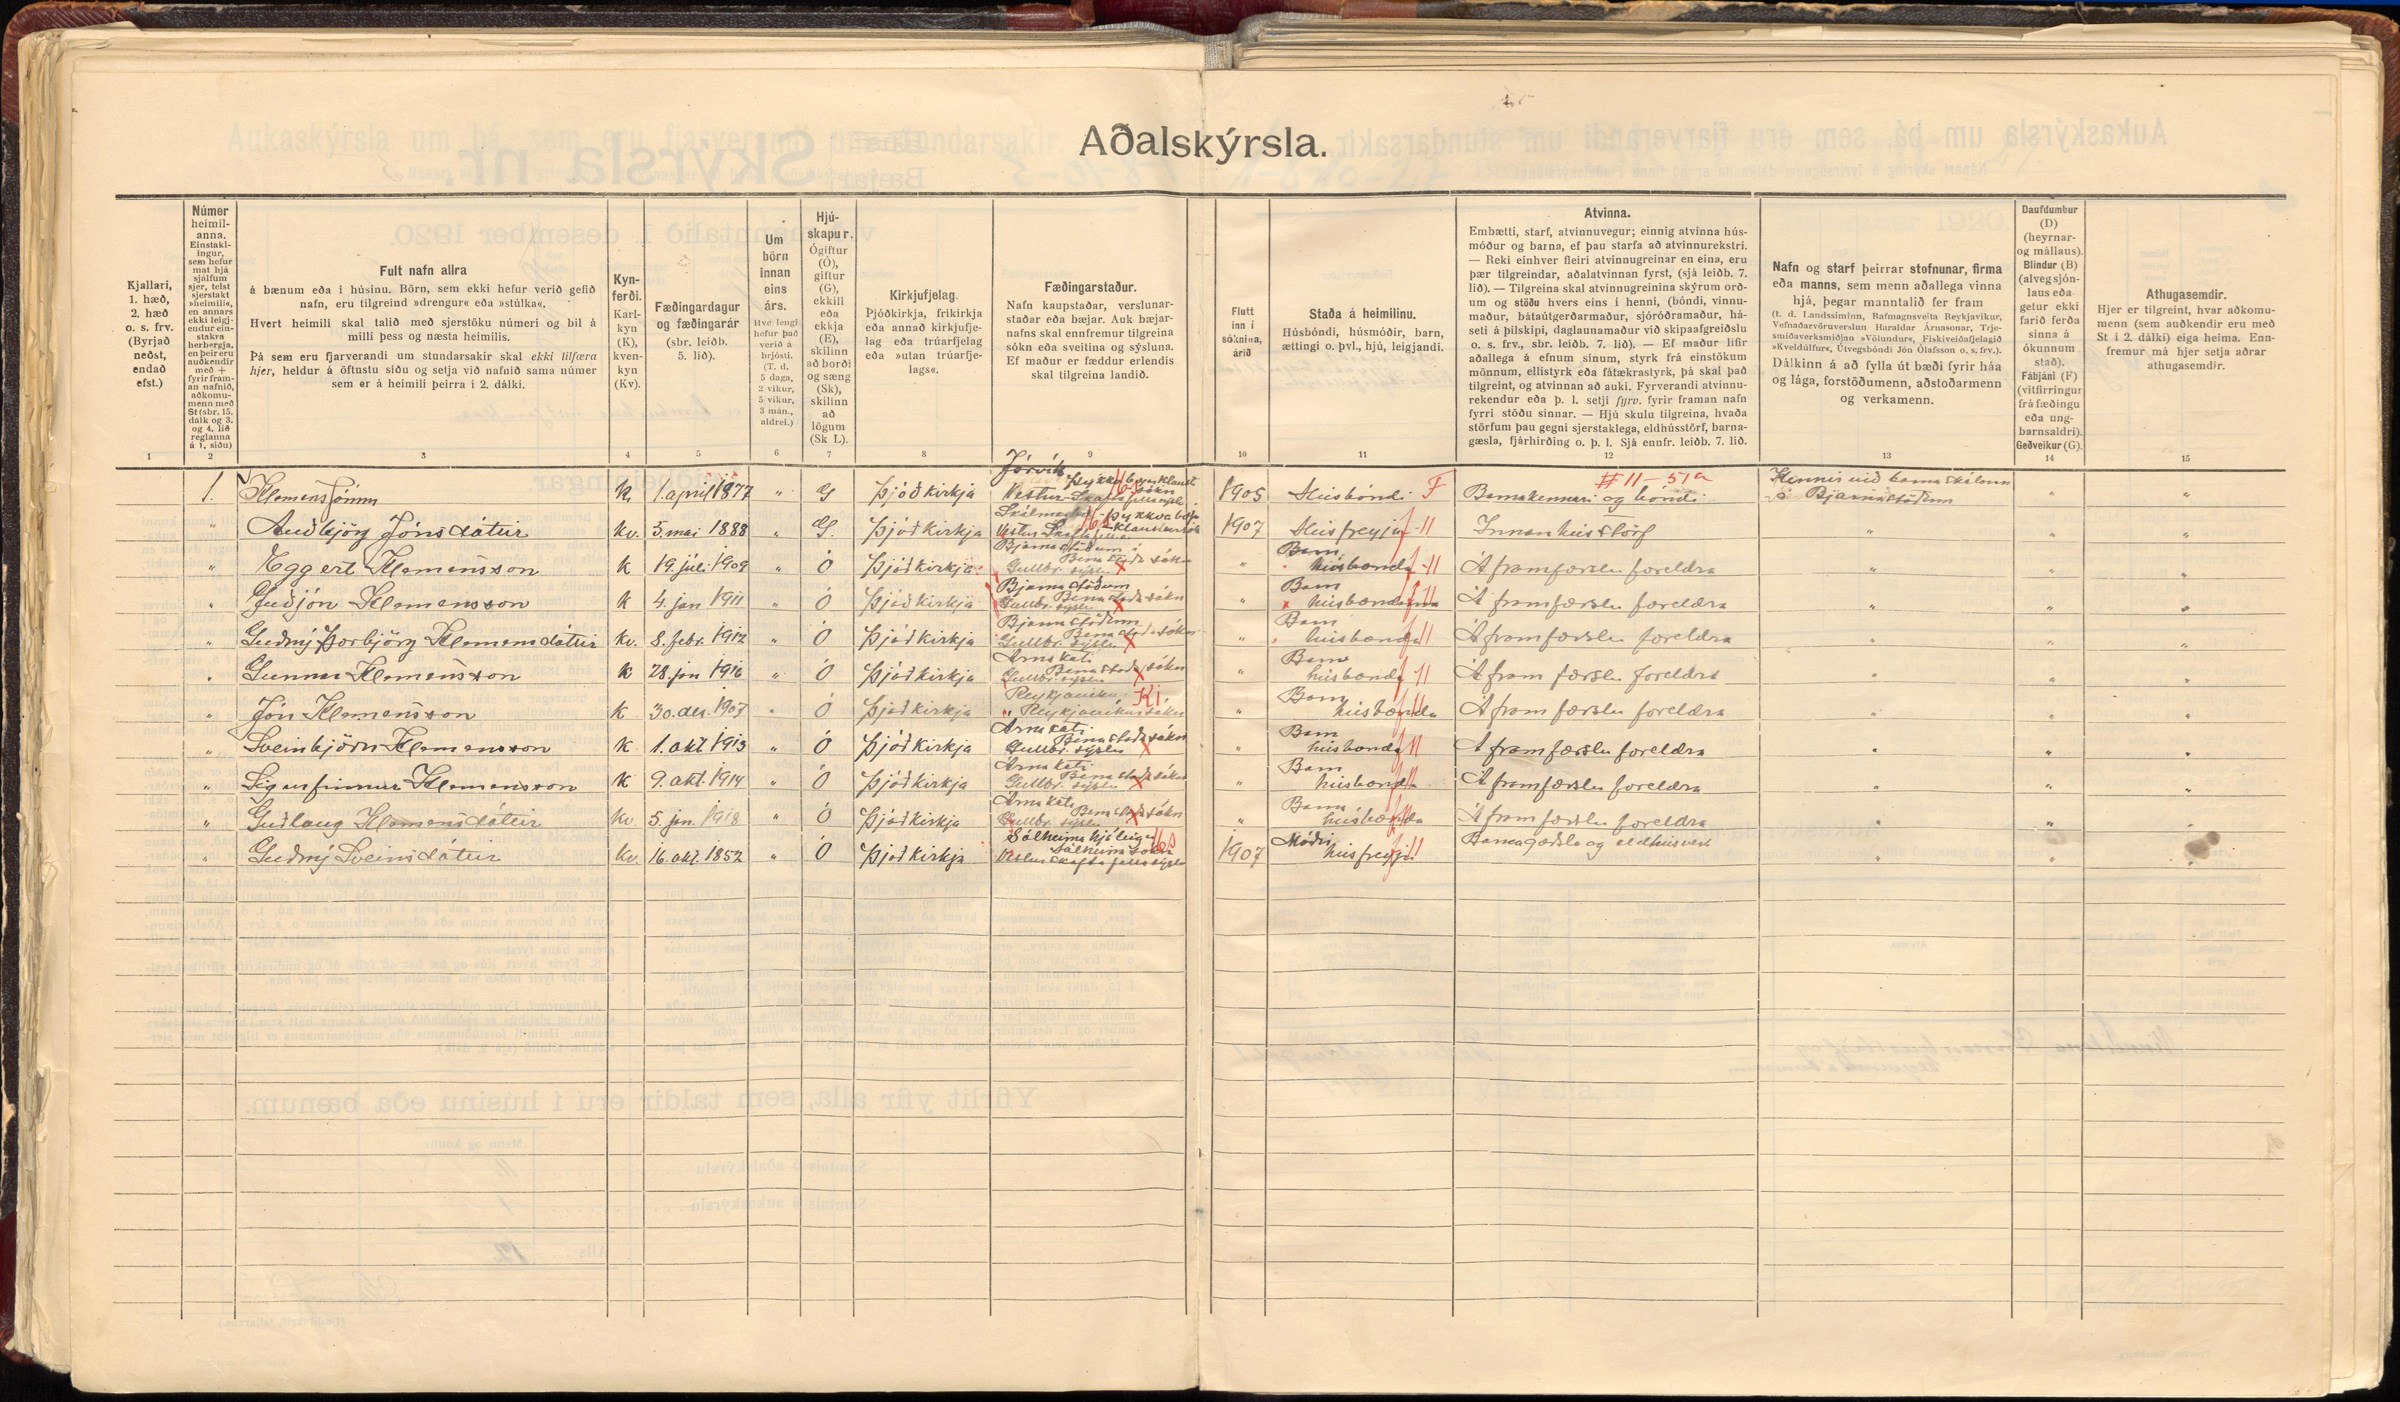 Aðalskýrsla.
Kjallari, 1. hæð, 2. hæð o. s. frv. (Byrjað neðst, endað efst.)
Númer heimilanna. Einstaklingur, sem hefur mat hjá sjálfum sjer, telst sjerstakt »heimili«, en annars ekki leigjendur einstakra herbergja, en þeir eru auðkendir með + fyrir framan nafnið, aðkomumenn með St (sbr. 15. dálk og 3. og 4. lið reglanna á 1. síðu)
Fult nafn allra
á bænum eða í húsinu. Börn, sem ekki hefur verið gefið nafn, eru tilgreind »drengur« eða »stúlka«.
Hvert heimili skal talið með sjerstöku númeri og bil á milli þess og næsta heimilis.
Þá sem eru fjarverandi um stundarsakir skal ekki tilfæra hjer, heldur á öftustu síðu og setja við nafnið sama númer sem er á heimili þeirra í 2. dálki.
Kynferði. Karlkyn (K), kvenkyn (Kv).
Fæðingardagur og fæðingarár (sbr. leiðb. 5. lið).
Um börn innan eins árs. Hve lengi hefur það verið á brjósti. (T. d. 5 daga, 2 vikur, 5 vikur, 3 mán., aldrei.)
Hjúskapur. Ógiftur (Ó), giftur (G), ekkill eða ekkja (E), skilinn að borði og sæng (Sk), skilinn að lögum (Sk L).
Kirkjufjelag. Þjóðkirkja, fríkirkja eða annað kirkjufjelag eða trúarfjelag eða »utan trúarfjelags«.
Fæðingarstaður. Nafn kaupstaðar, verslunarstaðar eða bæjar. Auk bæjarnafns skal ennfremur tilgreina sókn eða sveitina og sýsluna. Ef maður er fæddur erlendis skal tilgreina landið.
Flutt inn í sóknina, árið
Staða á heimilinu. Húsbóndi, húsmóðir, barn, ættingi o. þvl., hjú, leigjandi.
Atvinna.
Embætti, starf, atvinnuvegur; einnig atvinna húsmóður og barna, ef þau starfa að atvinnurekstri. — Reki einhver fleiri atvinnugreinar en eina, eru þær tilgreindar, aðalatvinnan fyrst, (sjá leiðb. 7. lið). — Tilgreina skal atvinnugreinina skýrum orðum og stöðu hvers eins í henni, (bóndi, vinnumaður, bátaútgerðarmaður, sjóróðramaður, háseti á þilskipi, daglaunamaður við skipaafgreiðslu o. s. frv., sbr. leiðb. 7. lið). — Ef maður lifir aðallega á efnum sínum, styrk frá einstökum mönnum, ellistyrk eða fátækrastyrk, þá skal það tilgreint, og atvinnan að auki. Fyrverandi atvinnurekendur eða þ. l. setji fyrv. fyrir framan nafn fyrri stöðu sinnar. — Hjú skulu tilgreina, hvaða störfum þau gegni sjerstaklega, eldhússtörf, barnagæsla, fjárhirðing o. þ. l. Sjá ennfr. leiðb. 7. lið.
Nafn og starf þeirrar stofnunar, firma eða manns, sem menn aðallega vinna hjá, þegar manntalið fer fram
(t. d. Landssíminn, Rafmagnsveita Reykjavíkur, Vefnaðarvöruverslun Haraldar Árnasonar, Trjesmíðaverksmiðjan »Völundur«, Fiskiveiðafjelagið »Kveldúlfur«, Útvegsbóndi Jón Ólafsson o. s. frv.).
Dálkinn á að fylla út bæði fyrir háa og lága, forstöðumenn, aðstoðarmenn og verkamenn.
Daufdumbur (D) (heyrnar- og mállaus). Blindur (B) (alveg sjónlaus eða getur ekki farið ferða sinna á ókunnum stað). Fábjáni (F) (vitfirringur frá fæðingu eða ungbarnsaldri). Geðveikur (G).
Athugasemdir. Hjer er tilgreint, hvar aðkomumenn (sem auðkendir eru með St í 2. dálki) eiga heima. Ennfremur má hjer setja aðrar athugasemdir.
1 2 3 4 5 6 7 8 9 10 11 12 13 14 15
1. Klemens Jónsson K. 1. april 1877 " G Þjóðkirkja Jórvík Þykkvabæjarklaust. sókn Vestur-Skaftafellssýsl. 1905 Húsbóndi F Barnakennari og bóndi # 11 - 51a Kennir við barnaskólann á Bjarnastöðum " "
" Auðbjörg Jónsdóttir Kv. 5. mai 1888 " G. Þjóðkirkja 1907 Húsfreyja f-11 Innanhússtörf " " "
" Eggert Klemensson K 19. júlí 1909 " Ó Þjóðkirkja Bjarnastöðum í Bessastaðasókn Gullbr. sýslu X " Barn húsbænda f-11 Á framfærslu foreldra " " "
" Guðjón Klemensson K 4. jan 1911 " Ó Þjóðkirkja Bjarnastöðum Bessastaðasókn Gullbr. sýslu X " Barn húsbændanna f 11 Á framfærslu foreldra " " "
" Guðný Þorbjörg Klemensdóttir Kv. 8. febr. 1912 " Ó Þjóðkirkja Bjarnastöðum Bessastaðasókn Gullbr. sýslu X " Barn húsbænda f 11 Á framfærslu foreldra " " "
" Gunnar Klemensson K 28. jan 1916 " Ó Þjóðkirkja Árnakoti Bessastaðasókn Gullbr. sýslu X " Barn húsbænda f-11 Á framfærslu foreldra " " "
" Jón Klemensson K 30. des. 1907 " Ó Þjóðkirkja Reykjavíkur Ki " Reykjavíkursókn " Barn húsbænda f 11 Á framfærslu foreldra " " "
" Sveinbjörn Klemensson K 1. okt. 1913 " Ó Þjóðkirkja Árnakoti Bessastaðasókn Gullbr. sýslu X " Barn húsbænda f 11 Á framfærslu foreldra " " "
" Sigurfinnur Klemensson K 9. okt. 1914 " Ó Þjóðkirkja Árnakoti Bessastaðasókn Gullbr. sýslu X " Barn húsbænda f 11 Á framfærslu foreldra " " "
" Guðlaug Klemensdóttir Kv 5. jan. 1918 " Ó Þjóðkirkja Árnakoti Bessastaðasókn Gullbr. sýslu X " Barn húsbænda f 11 Á framfærslu foreldra " " "
" Guðný Sveinsdóttir Kv. 16. okt. 1852 " Ó Þjóðkirkja Sólheimahjáleigu Sólheimasókn Vestur Skaftafellssýslu 1907 Móðir húsfreyju f 11 Barnagæsla og eldhúsverk " " "